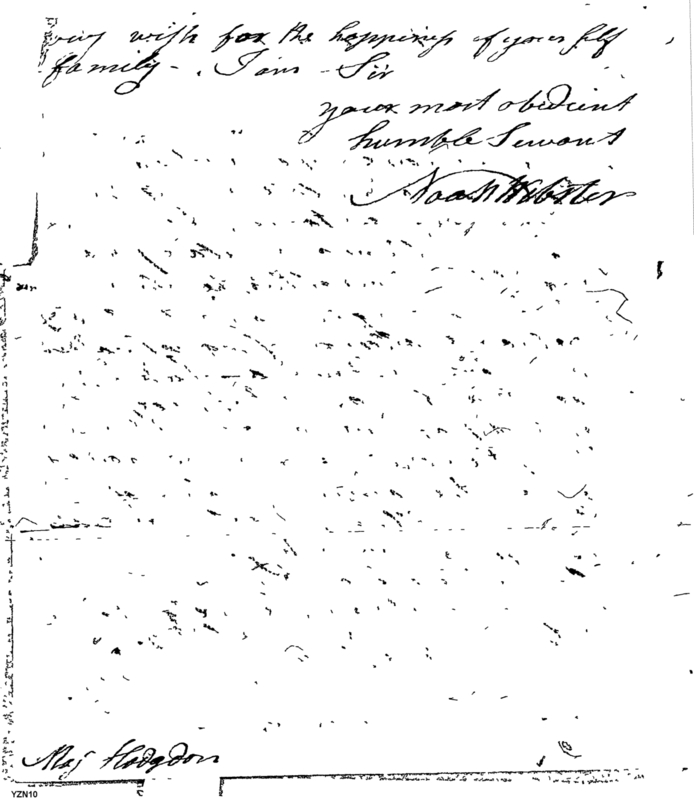 very wish for the happiness of your self
family - . I am - Sir
your most obedient
humble Servant
Noah Webster
Maj Hodgdon
YZN10